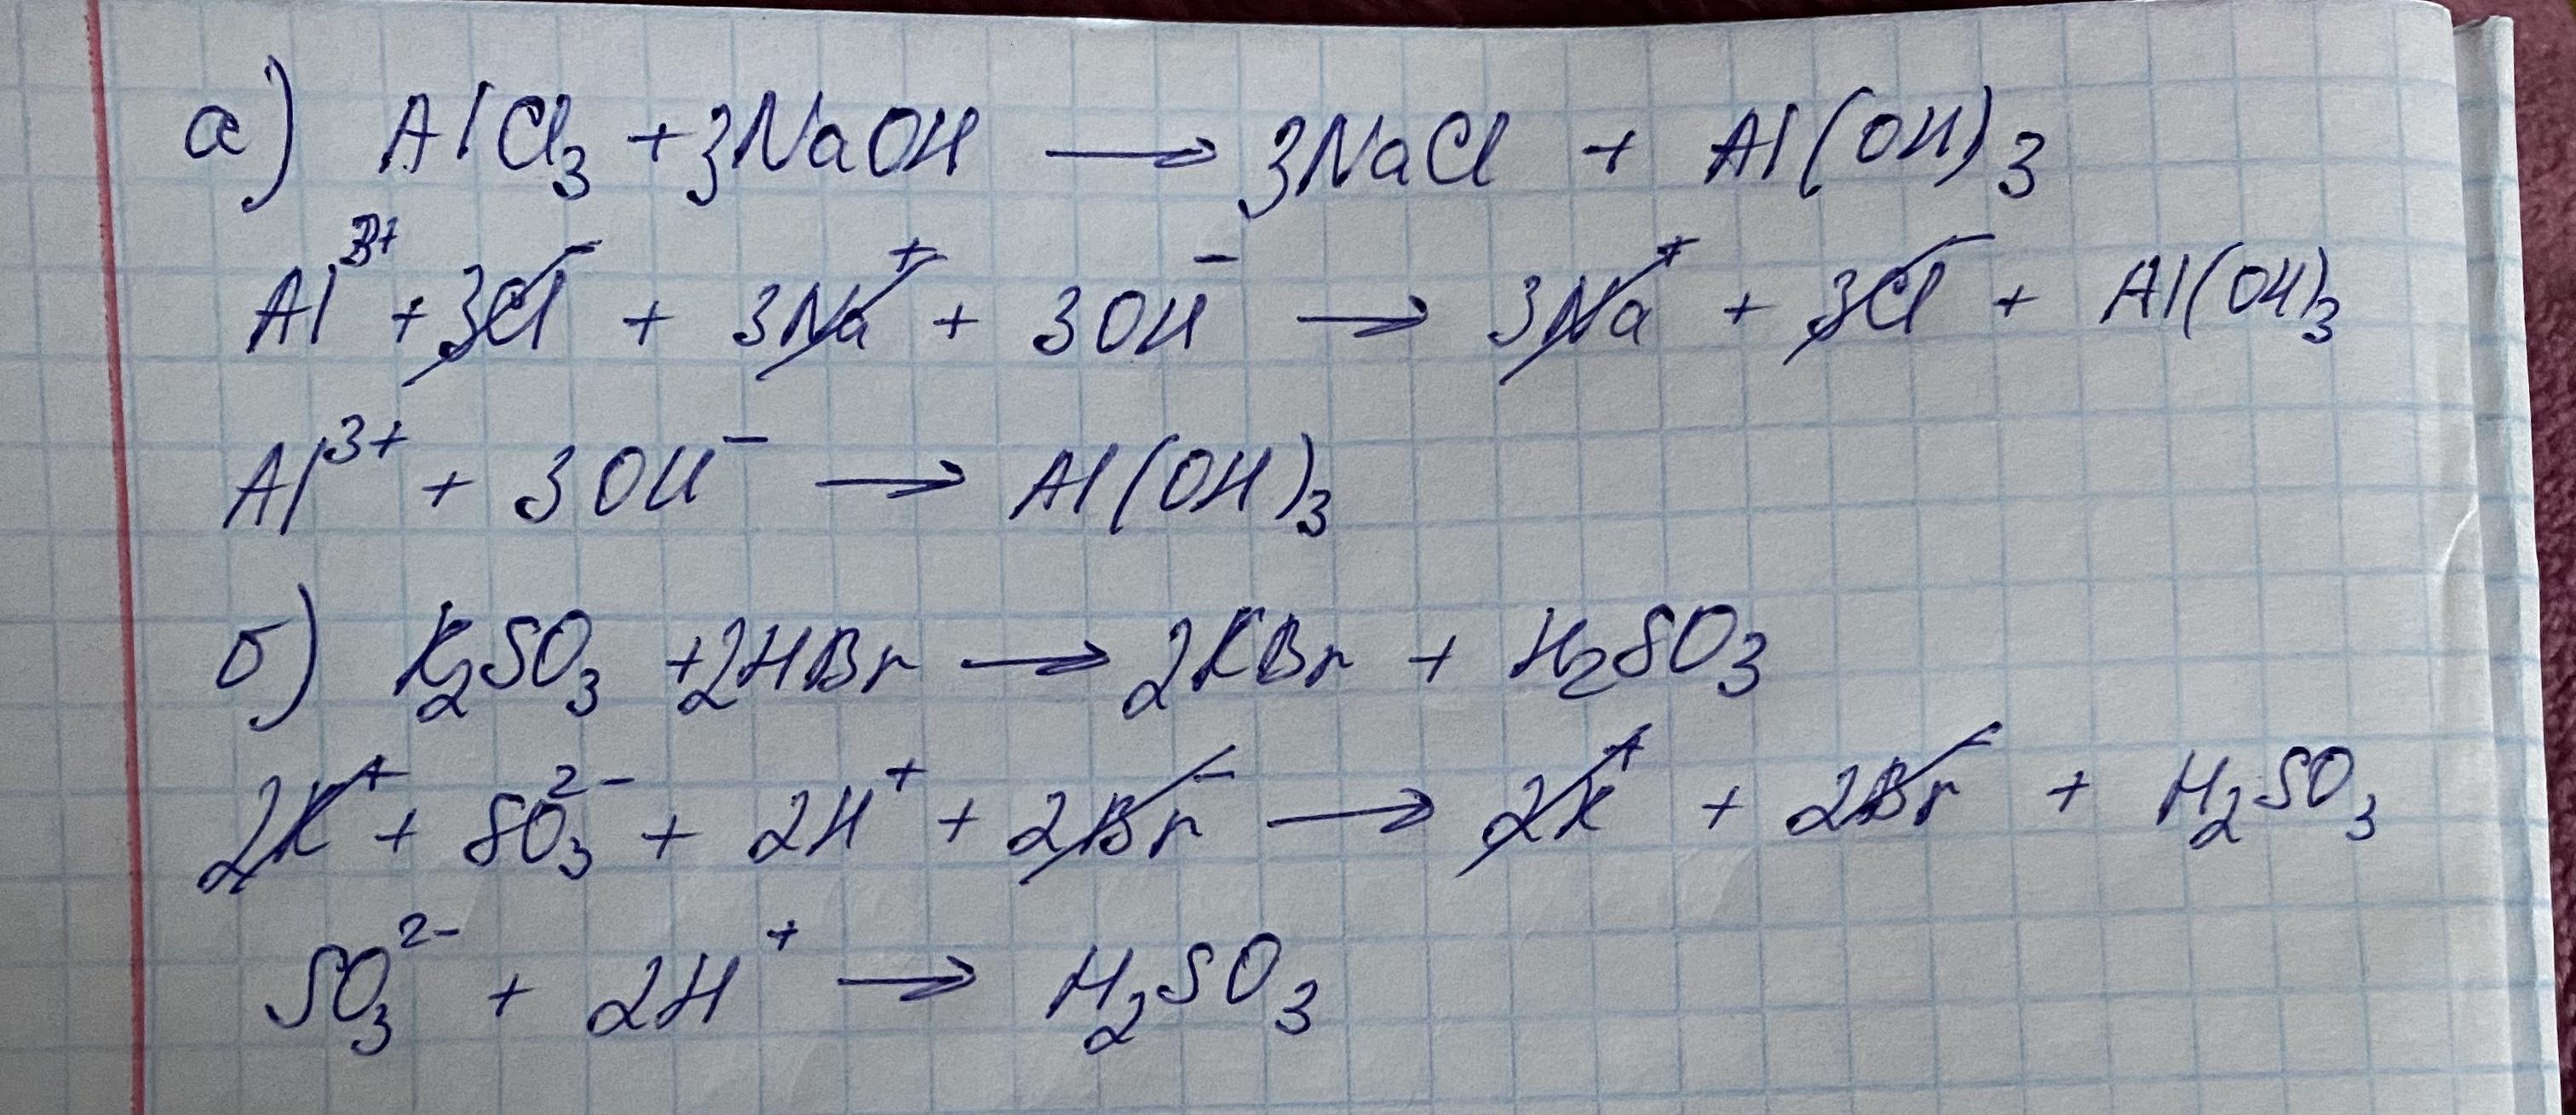 а) AlCl₃ + 3NaOH ⟶ 3NaCl + Al(OH)₃
Al³⁺ + 3Cl⁻ + 3Na⁺ + 3OH⁻ ⟶ 3Na⁺ + 3Cl⁻ + Al(OH)₃
Al³⁺ + 3OH⁻ ⟶ Al(OH)₃
б) K₂SO₃ + 2HBr ⟶ 2KBr + H₂SO₃
2K⁺ + SO₃²⁻ + 2H⁺ + 2Br⁻ ⟶ 2K⁺ + 2Br⁻ + H₂SO₃
SO₃²⁻ + 2H⁺ ⟶ H₂SO₃